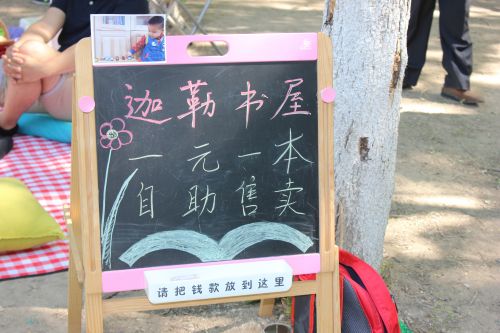 迦勒书屋
一元一本
自助售卖
请把钱款放到这里